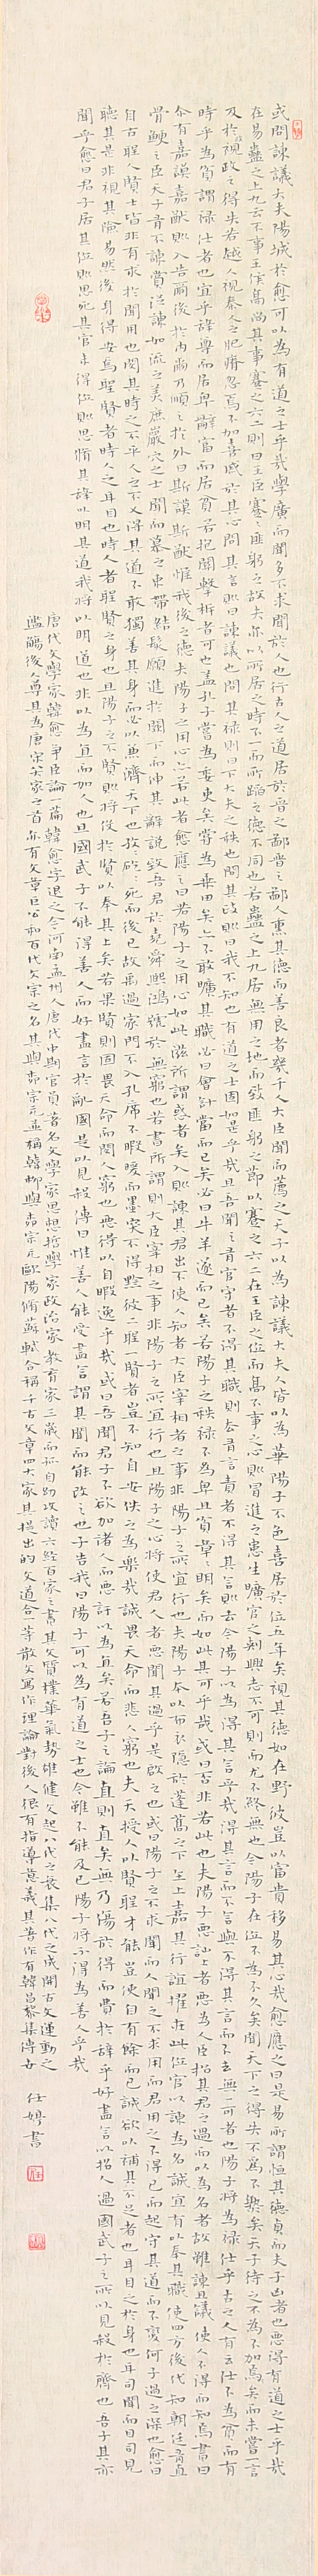 或問諫議大夫陽城於愈可以為有道之士乎哉學廣而聞多不求聞於人也行古人之道居於晉之鄙晉之鄙人熏其德而善良者幾千人大臣聞而薦之天子以為諫議大夫人皆以為華陽子不色喜居於位五年矣視其德如在野彼豈以富貴移易其心哉愈應之曰是易所謂恒其德貞而夫子凶者也惡得有道之士乎哉
在易蠱之上九云不事王侯高尚其事蹇之六二則曰王臣蹇蹇匪躬之故夫亦以所居之時不一而所蹈之德不同也若蠱之上九居無用之地而致匪躬之節以蹇之六二在王臣之位而高不事之心則冒進之患生曠官之刺興志不可則而尤不終無也今陽子在位不為不久矣聞天下之得失不為不矣天子待之不為不加矣而未嘗一言
及於政視政之得失若越人視秦人之肥瘠忽焉不加喜戚於其心問其官則曰諫議也問其祿則曰下大夫之秩也問其政則曰我不知也有道之士固如是乎哉且吾聞之有官守者不得其職則去有言責者不得其言則去今陽子以為得其言乎哉得其言而不言與不得其言而不去無一可者也陽子將為祿仕乎古之人有云仕不為貧而有
時乎為貧謂祿仕者也宜乎辭尊而居卑辭富而居貧若抱關擊柝者可也蓋孔子嘗為委吏矣嘗為乘田矣亦不敢曠其職必曰會計當而已矣必曰牛羊遂而已矣若陽子之秩祿不為卑且貧章章明矣而如此其可乎哉或曰否非若此也夫陽子惡訕上者惡為人臣招其君之過而以為名者故雖諫且議使人不得而知焉書曰
尒有嘉謨嘉猷則入告爾後於內爾乃順之於外曰斯謨斯猷惟我後之德夫陽子之用心亦若此者愈應之曰若陽子之用心如此滋所謂惑者矣入則諫其君出不使人知者大臣宰相者之事非陽子之所宜行也夫陽子本以布衣隱於蓬蒿之下主上嘉其行誼擢在此位官以諫為名誠宜有以奉其職使四方後代知朝廷有直
骨鯁之臣天子有不諫賞從諫如流之美庶巖穴之士聞而慕之束帶結髮願進於闕下而伸其辭說致吾君於堯舜熙鴻號於無窮也若書所謂則大臣宰相之事非陽子之所宜行也且陽子之心將使君人者惡聞其過乎是啟之也或曰陽子之不求聞而人聞之不求用而君用之不得已而起守其道而不變何子過之深也愈曰
自古聖人賢士皆非有求於聞用也閔其時之不平人之不乂得其道不敢獨善其身而必以兼濟天下也孜孜矻矻死而後已故禹過家門不入孔席不暇暖而墨突不得黔彼二聖一賢者豈不知自安佚之為樂哉誠畏天命而悲人窮也夫天授人以賢聖才能豈使自有餘而已誠欲以補其不足者也耳目之於身也耳司聞而目司見
聽其是非視其險易然後身得安焉聖賢者時人之耳目也時人者聖賢之身也且陽子之不賢則將役於賢以奉其上矣若果賢則固畏天命而閔人窮也惡得以自暇逸乎哉或曰吾聞君子不欲加諸人而惡訐以為直矣若吾子之論直則直矣無乃傷於得而費於辭乎好盡言以招人過國武子之所以見殺於齊也吾子其亦
聞乎愈曰君子居其位則思死其官未得位則思修其辭以明其道我將以明道也非以為直而加人也且國武子不能得善人而好盡言於亂國是以見殺傳曰惟善人能受盡言謂其聞而能改之也子告我曰陽子可以為有道之士也今雖不能及已陽子將不得為善人乎哉
唐代文學家韓愈爭臣論一篇韓愈字退之今河南孟州人唐代中期官員著名文學家思想哲學家政治家教育家三歲而孤自幼攻讀六經百家之書其文質樸華氣勢雄健文起八代之衰集八代之成開古文運動之
濫觴後人尊其為唐宋八大家之首亦有文章巨公和百代文宗之名其與柳宗元並稱韓柳與柳宗元歐陽脩蘇軾合稱千古文章四大家其提出的文道合一等散文寫作理論對後人很有指導意義其著作有韓昌黎集傳世
任婷書